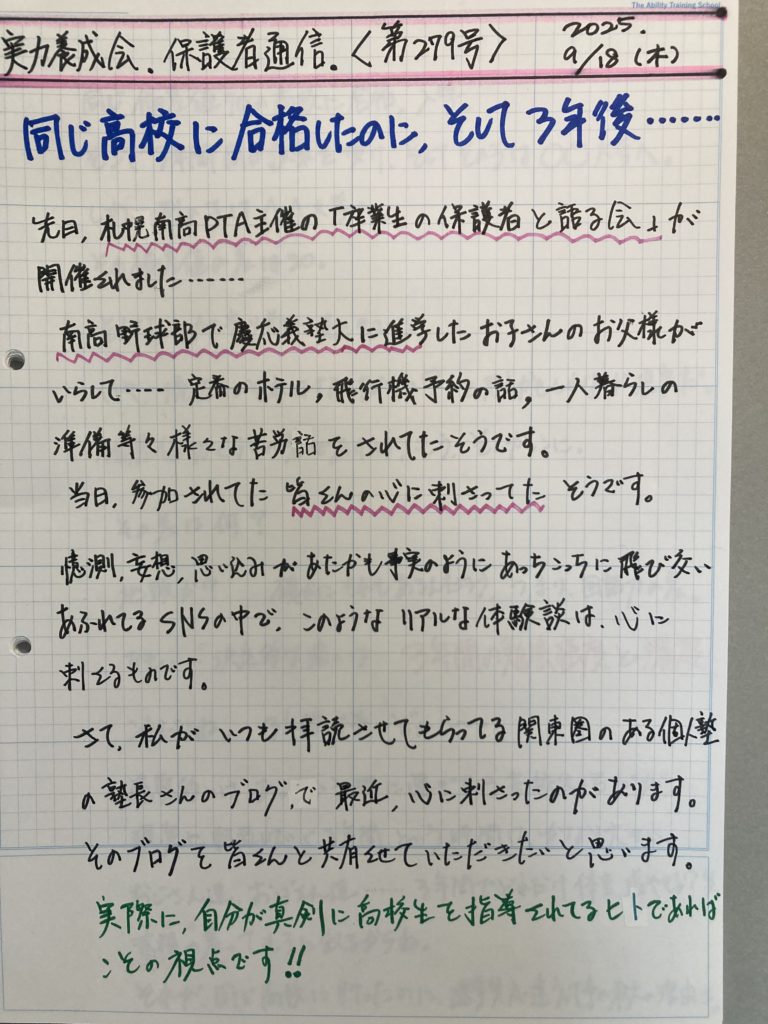 The Ability Training School
実力養成会.保護者通信.〈第279号〉
2025.
9/18(木)
同じ高校に合格したのに,そして3年後……
先日,札幌南高PTA主催の「卒業生の保護者と語る会」が
開催されました……
南高野球部で慶応義塾大に進学したお子さんのお父様が
いらして…… 定番のホテル,飛行機予約の話,一人暮らしの
準備等々様々な苦労話をされてたそうです。
当日,参加されてた皆さんの心に刺さってたそうです。
憶測,妄想,思い込みがあたかも事実のようにあっちこっちに飛び交い
あふれてるSNSの中で,このようなリアルな体験談は,心に
刺さるものです。
さて,私がいつも拝読させてもらってる関東圏のある個人塾
の塾長さんのブログ,で最近,心に刺さったのがあります。
そのブログを皆さんと共有させていただきたいと思います。
実際に,自分が真剣に高校生を指導されてるヒトであれば
こその視点です!!